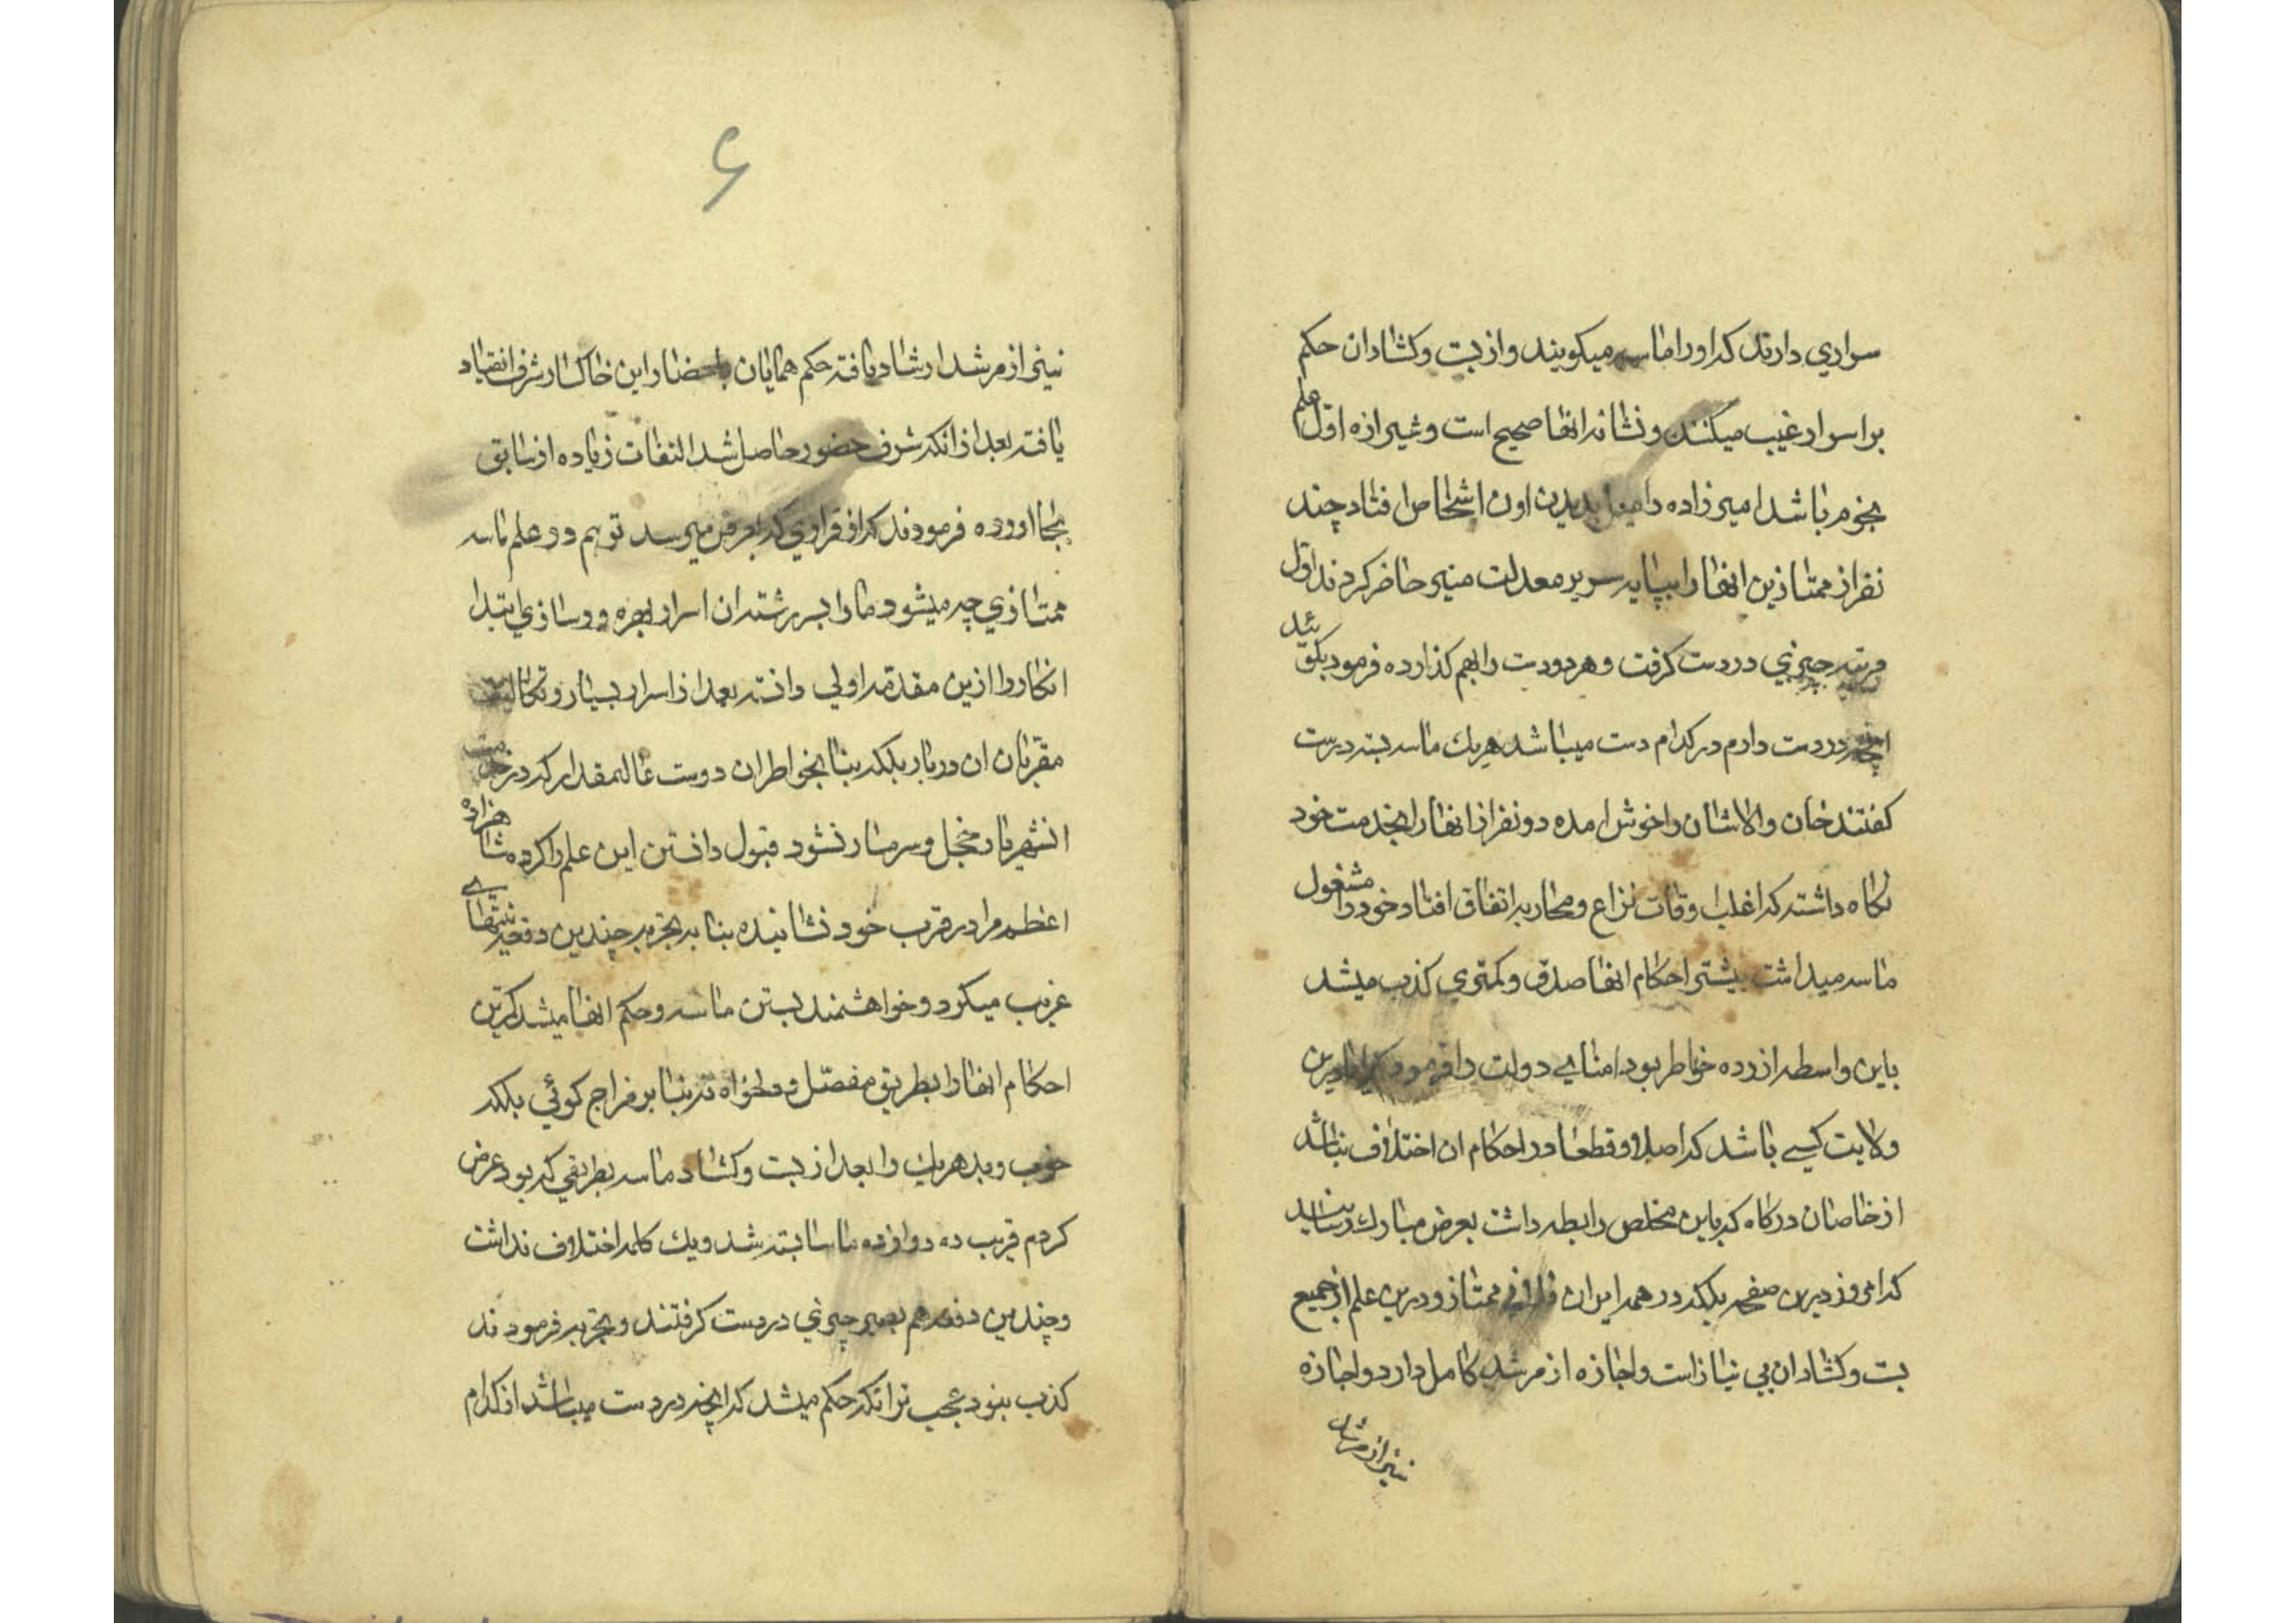 سواري دارند که اورا ماسه میکویند واز بست وکشادان حکم
براسرار غیب میکنند ونشانه انها صحیح است وشیرازه اول علم
نجوم باشد امیرزاده را میل بدیدن اون اشخاص افتاد چند
نفر از ممتازین انها را بپایه سریر معدلت منیر حاضر کردند اول
مرتبه چیزي در دست کرفت وهر دو دست را بهم کذارده فرمود بکوئید
انچه در دست دارم در کدام دست میباشد هریك ماسه بسته درست
کفتند خان والاشان را خوش امده دو نفر از انها را بخدمت خود
نکاه داشته که اغلب اوقات نزاع ومحاربه اتفاق افتاد خود را مشغول
ماسه میداشت بیشتر احکام انها صدق وکمتري کذب میشد
باین واسطه ازرده خواطر بود امناي دولت را فرمود که ایا درین
ولایت کسي باشد که اصلا وقطعا در احکام ان اختلاف نباشد
از خاصان درکاه که باین مخلص رابطه داشت بعرض مبارك رسانید
که امروز درین صفحه بلکه در همه ایران ممتاز ودرین علم از جمیع
بست وکشادان بي نیاز است واجازه از مرشد کامل دارد واجازه
نیز از مرشد
۶
نیز از مرشد ارشاد یافته حکم همایان باحضار این خاکسار شرف انقیاد
یافته بعد از انکه شرف حضور حاصل شد التفات زیاده از سابق
بجا اورده فرمودند که از قراري که بعرض میرسد تو هم در علم ماسه
ممتازي چه میشود ما را بسر رشته ان اسرار بهره ور سازي ابتدا
انکار را ازین مقدمه اولي دانسته بعد از اسرار بسیار وتکالیف
مقربان ان دربار بلکه بنا بخواطر ان دوست عالیمقدار که در خدمت
انشهریار خجل وسرمسار نشود قبول دانستن این علم را کرده شاهزاده
اعظم مرا در قرب خود نشانیده بنا به تجربه چندین دفعه نیتهاي
غریب میکرد وخواهشمند بستن ماسه وحکم انها میشد کمترین
احکام انها را بطریق مفصل ودلخواه نه بنا بر مزاج کوئي بلکه
خوب وبد هریك را بعد از بست وکشاد ماسه بطریقي که بود عرض
کردم قریب ده دوازده ماسا بسته شد ویك کلمه اختلاف نداشت
وچندین دفعه هم بعیر چیزي در دست کرفتند وتجربه فرمودند
کذب نبود عجب تر انکه حکم میشد که انچه در دست میباشد از کدام